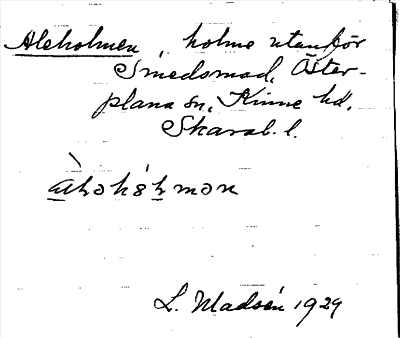 Aleholmen, holme utanför
Smedsmad, Öster-
plana sn, Kinne hd,
Skarab. l.
L. Madsén 1929